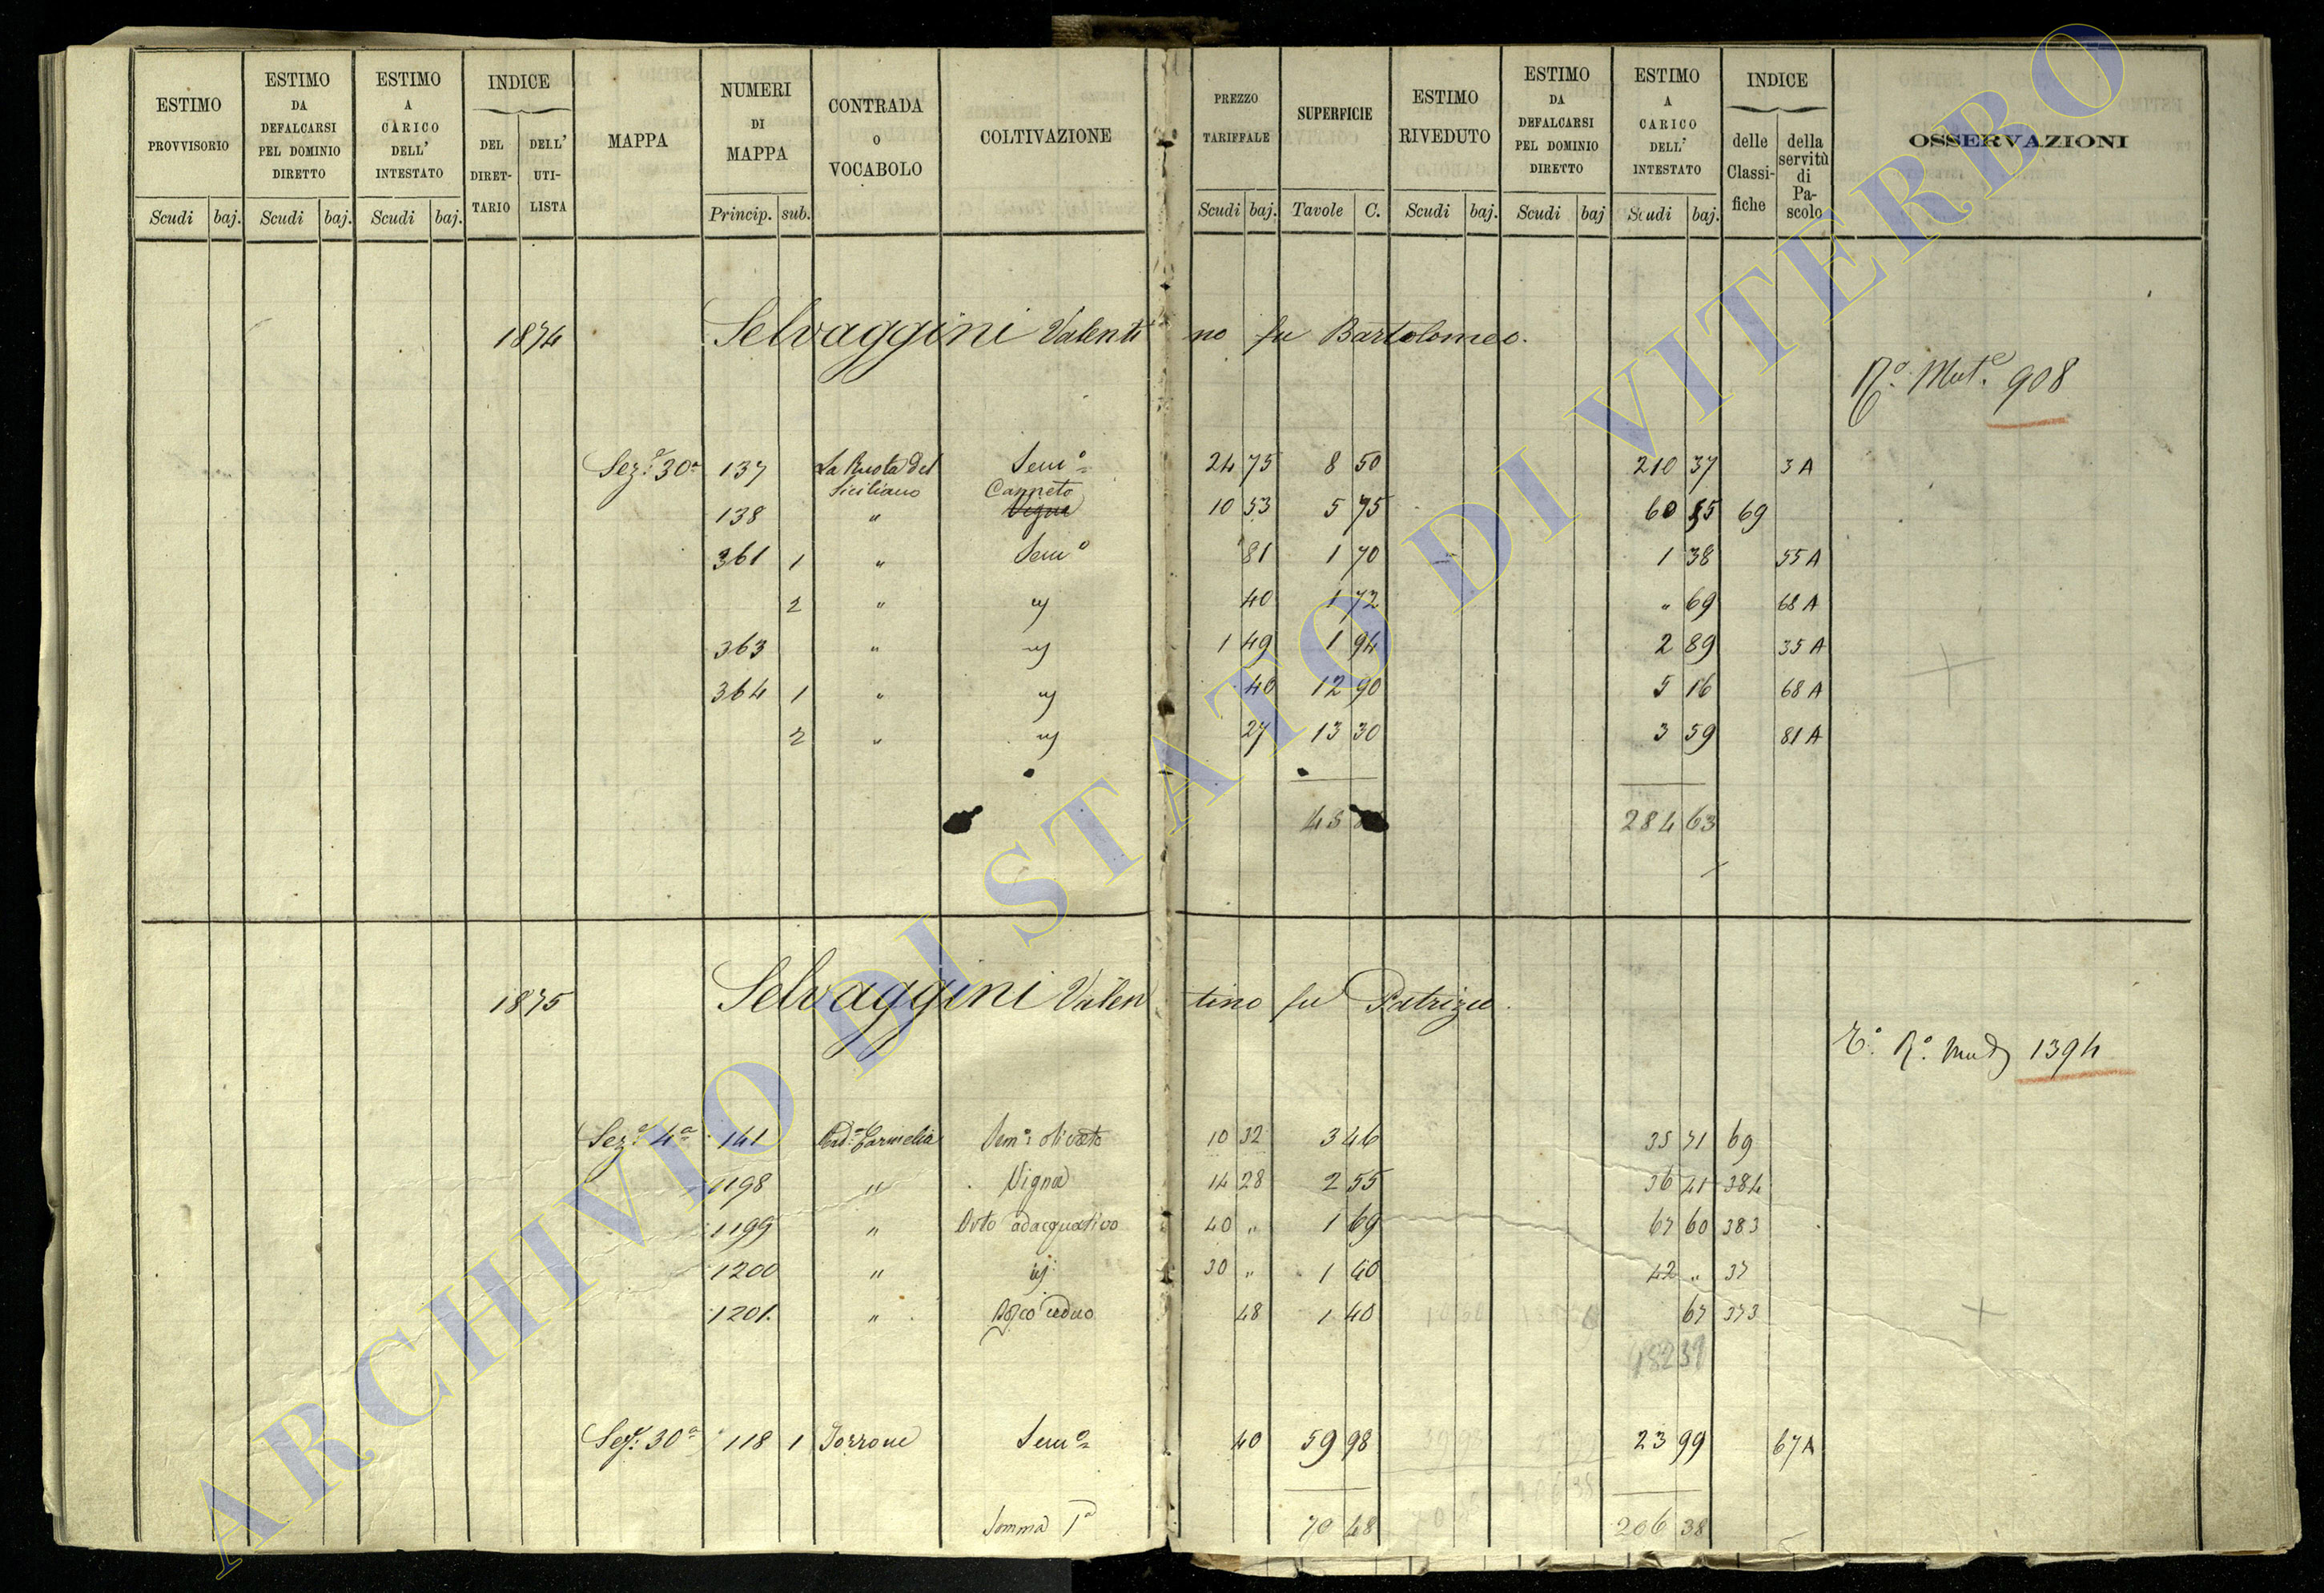 ESTIMO PROVVISORIO
ESTIMO DA DEFALCARSI PEL DOMINIO DIRETTO
ESTIMO A CARICO DELL' INTESTATO
INDICE
DEL DIRET-TARIO
DELL' UTI-LISTA
MAPPA
NUMERI DI MAPPA
CONTRADA O VOCABOLO
COLTIVAZIONE
PREZZO TARIFFALE
SUPERFICIE
ESTIMO RIVEDUTO
ESTIMO DA DEFALCARSI PEL DOMINIO DIRETTO
ESTIMO A CARICO DELL' INTESTATO
INDICE
delle Classi-fiche
della servitù di Pa-scolo
OSSERVAZIONI
Scudi baj. Scudi baj. Scudi baj. Princip. sub. Scudi baj. Tavole C. Scudi baj. Scudi baj Scudi baj.
1874 Selvaggini Valentino fu Bartolomeo.
Rº. Mut.e 908
Sez.e 30a 137 La Ruota del Siciliano Semº 24 75 8 50 210 37 3 A
Canneto
138 " Vigna 10 53 5 75 60 55 69
361 1 " Semº 81 1 70 1 38 55 A
2 " " 40 1 72 " 69 68 A
363 " " 1 49 1 94 2 89 35 A
364 1 " " 40 12 90 5 16 68 A
2 " " 27 13 30 3 59 81 A
45 284 63
1875 Selvaggini Valentino fu Patrizio.
Rº. 1394
Sez.e 4a 141 Semº olivato 10 32 3 46 35 71 69
1198 " Vigna 14 28 2 55 36 41 384
1199 " Orto adacquativo 40 " 1 69 67 60 383
1200 " " 30 " 1 40 42 " 37
1201. " Bosco ceduo 48 1 40 67 373
182 39
Sez.e 30a 118 1 Torrone Semº 40 59 98 23 99 67 A
Somma Ta 70 48 206 38
ARCHIVIO DI STATO DI VITERBO